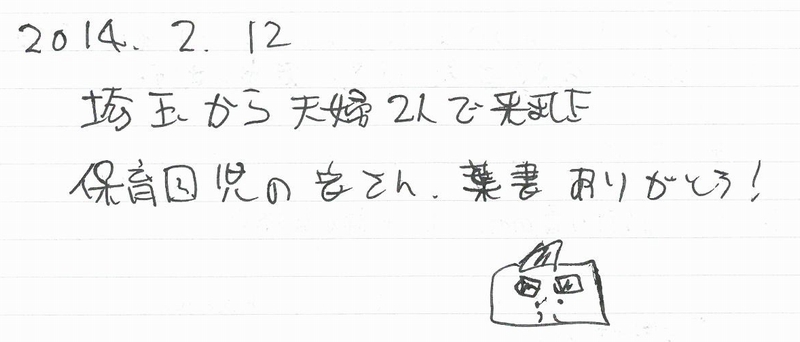 2014. 2. 12
埼玉から夫婦2人で来ました
保育園児の皆さん、葉書ありがとう!